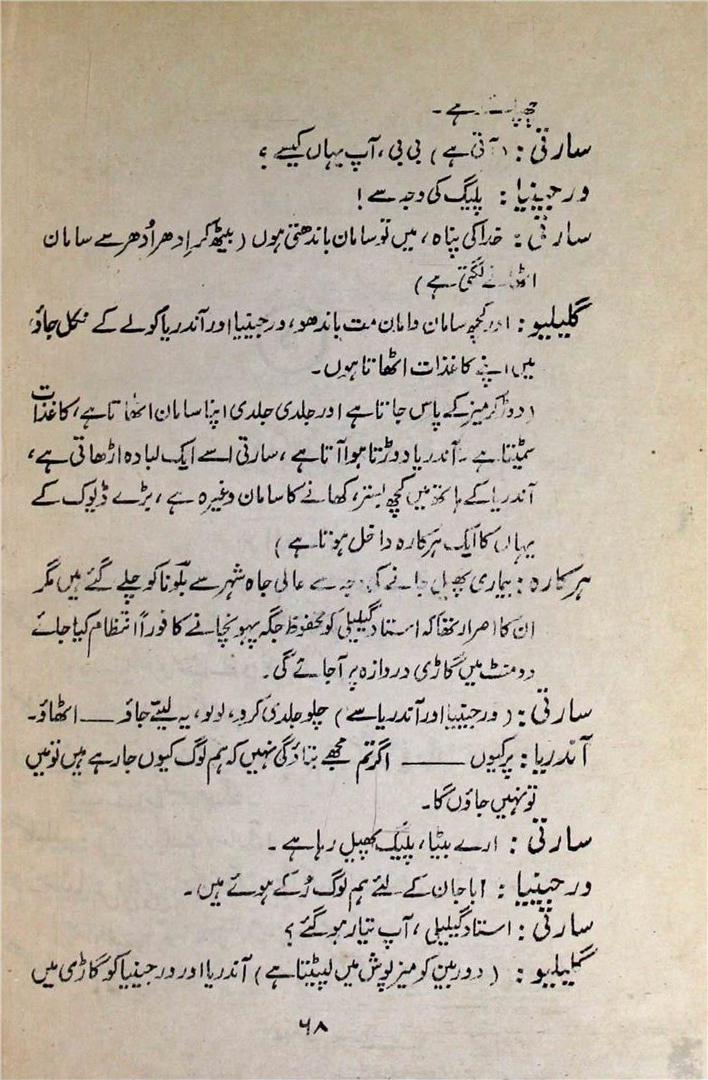 ہے۔
سارتی : (آتی ہے) بی بی، آپ یہاں کیسے؟
ورجینیا : پلیگ کی وجہ سے!
سارتی : خدا کی پناہ، میں تو سامان باندھتی ہوں (بیٹھ کر اِدھر اُدھر سے سامان
اٹھانے لگتی ہے)
گلیلیو : اور کچھ سامان وامان مت باندھو، ورجینیا اور آندریا کو لے کے نکل جاؤ،
میں اپنے کاغذات اٹھاتا ہوں۔
(دوڑ کر میز کے پاس جاتا ہے اور جلدی جلدی اپنا سامان اٹھاتا ہے، کاغذات
سمیٹتا ہے۔ آندریا دوڑتا ہوا آتا ہے، سارتی اسے ایک لبادہ اڑھاتی ہے،
آندریا کے ہاتھ میں کچھ بستر، کھانے کا سامان وغیرہ ہے، بڑے ڈیوک کے
یہاں کا ایک ہرکارہ داخل ہوتا ہے)
ہرکارہ : بیماری پھیل جانے کی وجہ سے عالی جاہ شہر سے بلونا کو چلے گئے ہیں مگر
ان کا اصرار تھا کہ استاد گیلیلی کو محفوظ جگہ پہونچانے کا فوراً انتظام کیا جائے
دو منٹ میں گاڑی دروازہ پر آجائے گی۔
سارتی : (ورجینیا اور آندریا سے) چلو جلدی کرو، لو لو، یہ لیتے جاؤ ــــ اٹھاؤ۔
آندریا : پر کیوں ــــــ اگر تم مجھے بتاؤ گی نہیں کہ ہم لوگ کیوں جا رہے ہیں تو میں
تو نہیں جاؤں گا۔
سارتی : ارے بیٹا، پلیگ پھیل رہا ہے۔
ورجینیا : ابا جان کے لئے ہم لوگ رُکے ہوئے ہیں۔
سارتی : استاد گیلیلی، آپ تیار ہو گئے؟
گلیلیو : (دوربین کو میز پوش میں لپیٹتا ہے) آندریا اور ورجینیا کو گاڑی میں
۶۸